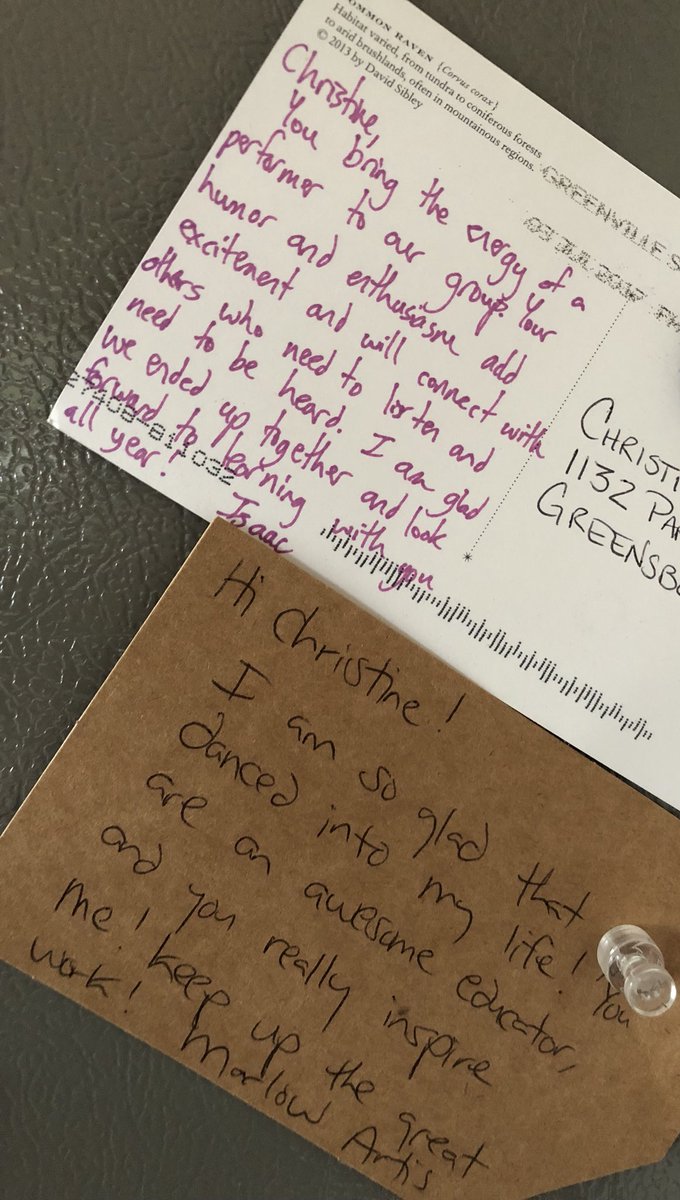 COMMON RAVEN {Corvus corax}
Habitat varied, from tundra to coniferous forests
to arid brushlands, often in mountainous regions.
© 2013 by David Sibley
GREENVILLE S
03 JUL
Christine,
You bring the energy of a
performer to our group. Your
humor and enthusiasm add
excitement and will connect with
others who need to listen and
need to be heard. I am glad
we ended up together and look
forward to learning with you
all year!
Isaac
CHRISTI
1132 PA
GREENSBO
Hi Christine!
I am so glad that
danced into my life! You
are an awesome educator,
and you really inspire
me! Keep up the great
work!
Marlow Artis